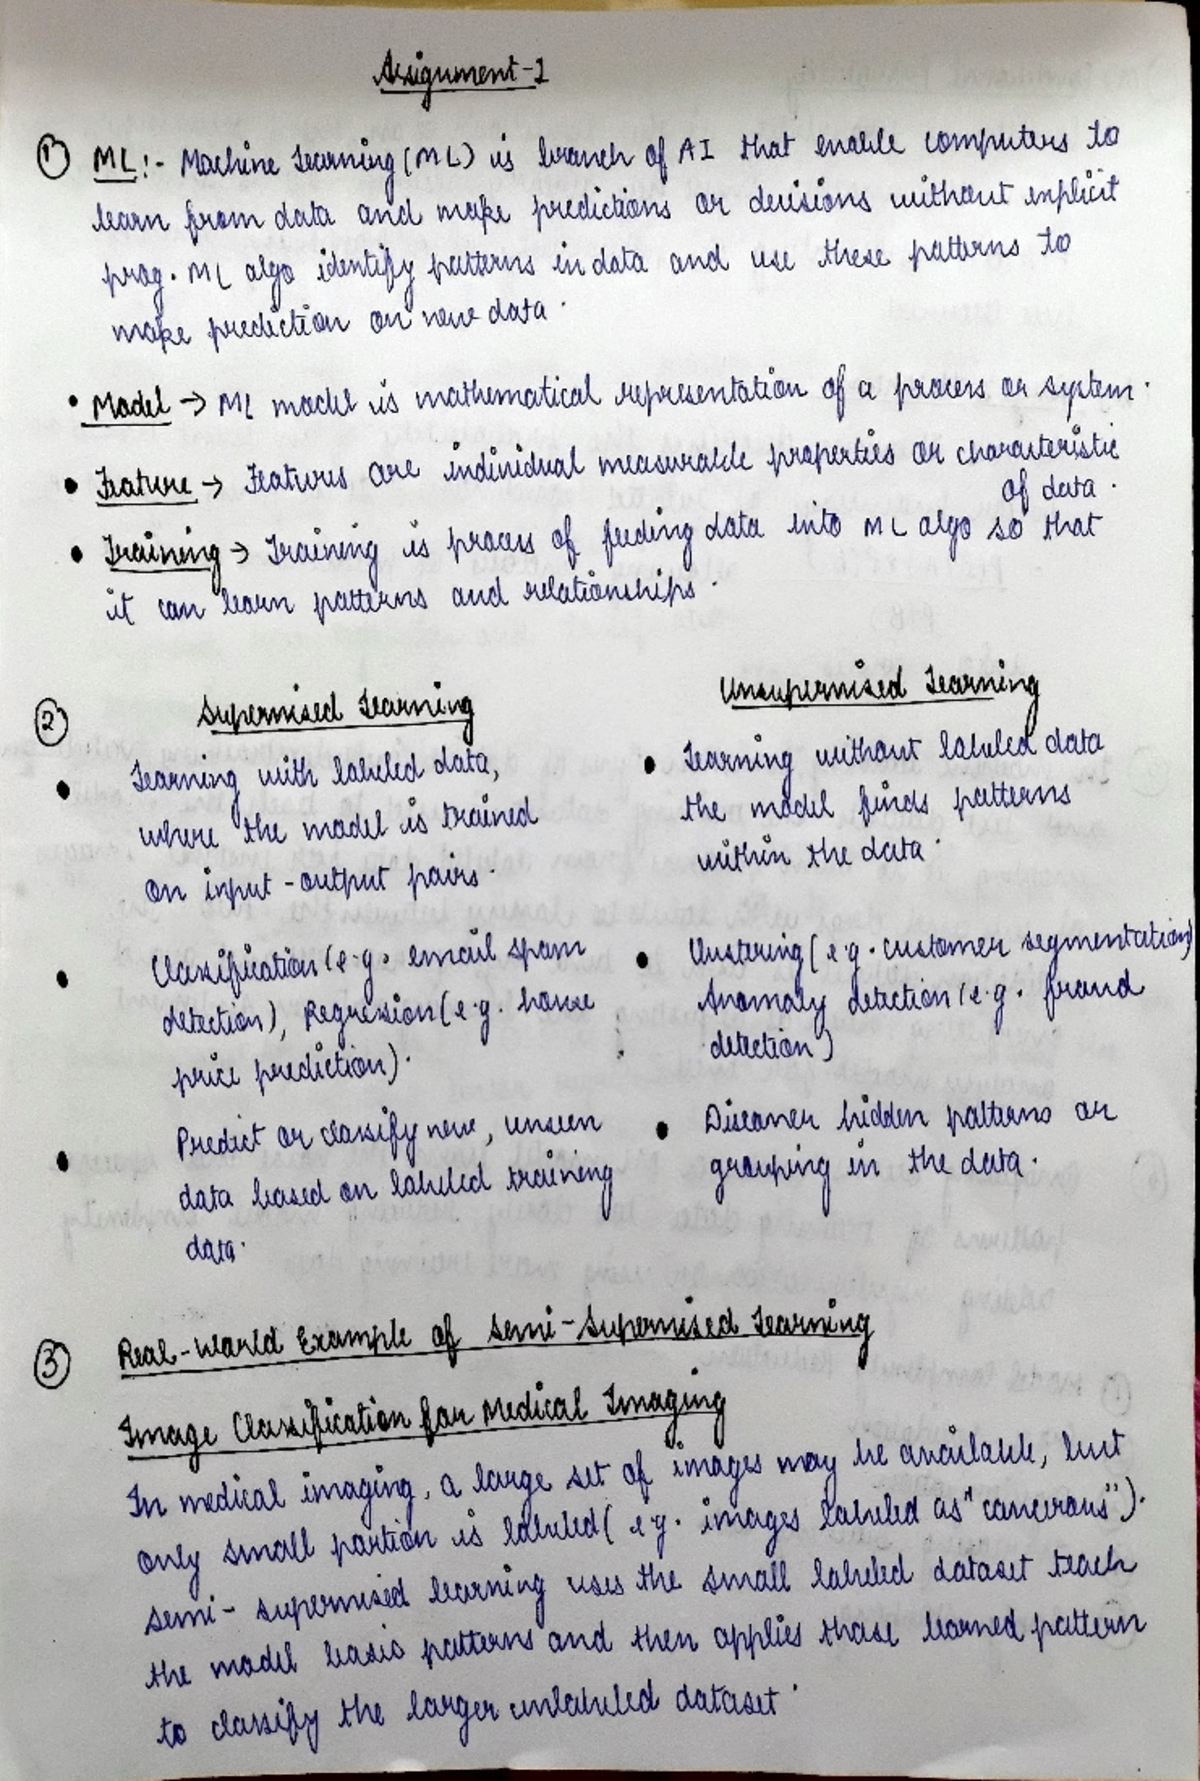 Assignment-1
① ML:- Machine Learning (ML) is branch of AI that enable computers to
learn from data and make predictions or decisions without explicit
prog. ML algo identify patterns in data and use these patterns to
make prediction on new data.
• Model → ML model is mathematical representation of a process or system.
• Feature → Features are individual measurable properties or characteristic
of data.
• Training → Training is process of feeding data into ML algo so that
it can learn patterns and relationships.
② Supervised Learning
• Learning with labeled data,
where the model is trained
on input-output pairs.
• Classification (e.g. email spam
detection), Regression (e.g. house
price prediction).
• Predict or classify new, unseen
data based on labeled training
data.
Unsupervised Learning
• Learning without labeled data
the model finds patterns
within the data.
• Clustering (e.g. customer segmentation)
Anomaly detection (e.g. fraud
detection)
• Discover hidden patterns or
grouping in the data.
③ Real-World Example of Semi-Supervised Learning
Image Classification for Medical Imaging
In medical imaging, a large set of images may be available, but
only small portion is labeled (e.g. images labeled as "cancerous").
Semi-supervised learning uses the small labeled dataset teach
the model basic patterns and then applies those learned pattern
to classify the larger unlabeled dataset.